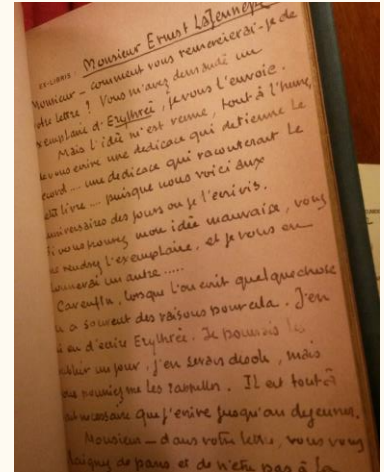 EX-LIBRIS : Monsieur Ernest LaJeunesse
Monsieur — comment vous remercierai-je de
votre lettre ? Vous m'avez demandé un
exemplaire d'Erythrée, je vous l'envoie.
Mais l'idée m'est venue, tout à l'heure,
de vous écrire une dédicace qui détienne le
record .... une dédicace qui raconterait le
livre .... puisque nous voici aux
anniversaires des jours où je l'écrivis.
Si vous trouvez mon idée mauvaise, vous
me rendrez l'exemplaire, et je vous en
donnerai un autre .....
Car enfin, lorsque l'on écrit quelque chose
on a souvent des raisons pour cela. J'en
ai eu d'écrire Erythrée. Je pourrais les
oublier un jour, j'en serais désolé, mais
vous pourriez me les rappeler. Il est tout à
fait nécessaire que j'écrive jusqu'au déjeuner.
Monsieur — dans votre lettre, vous vous
de paris et de n'être pas à la